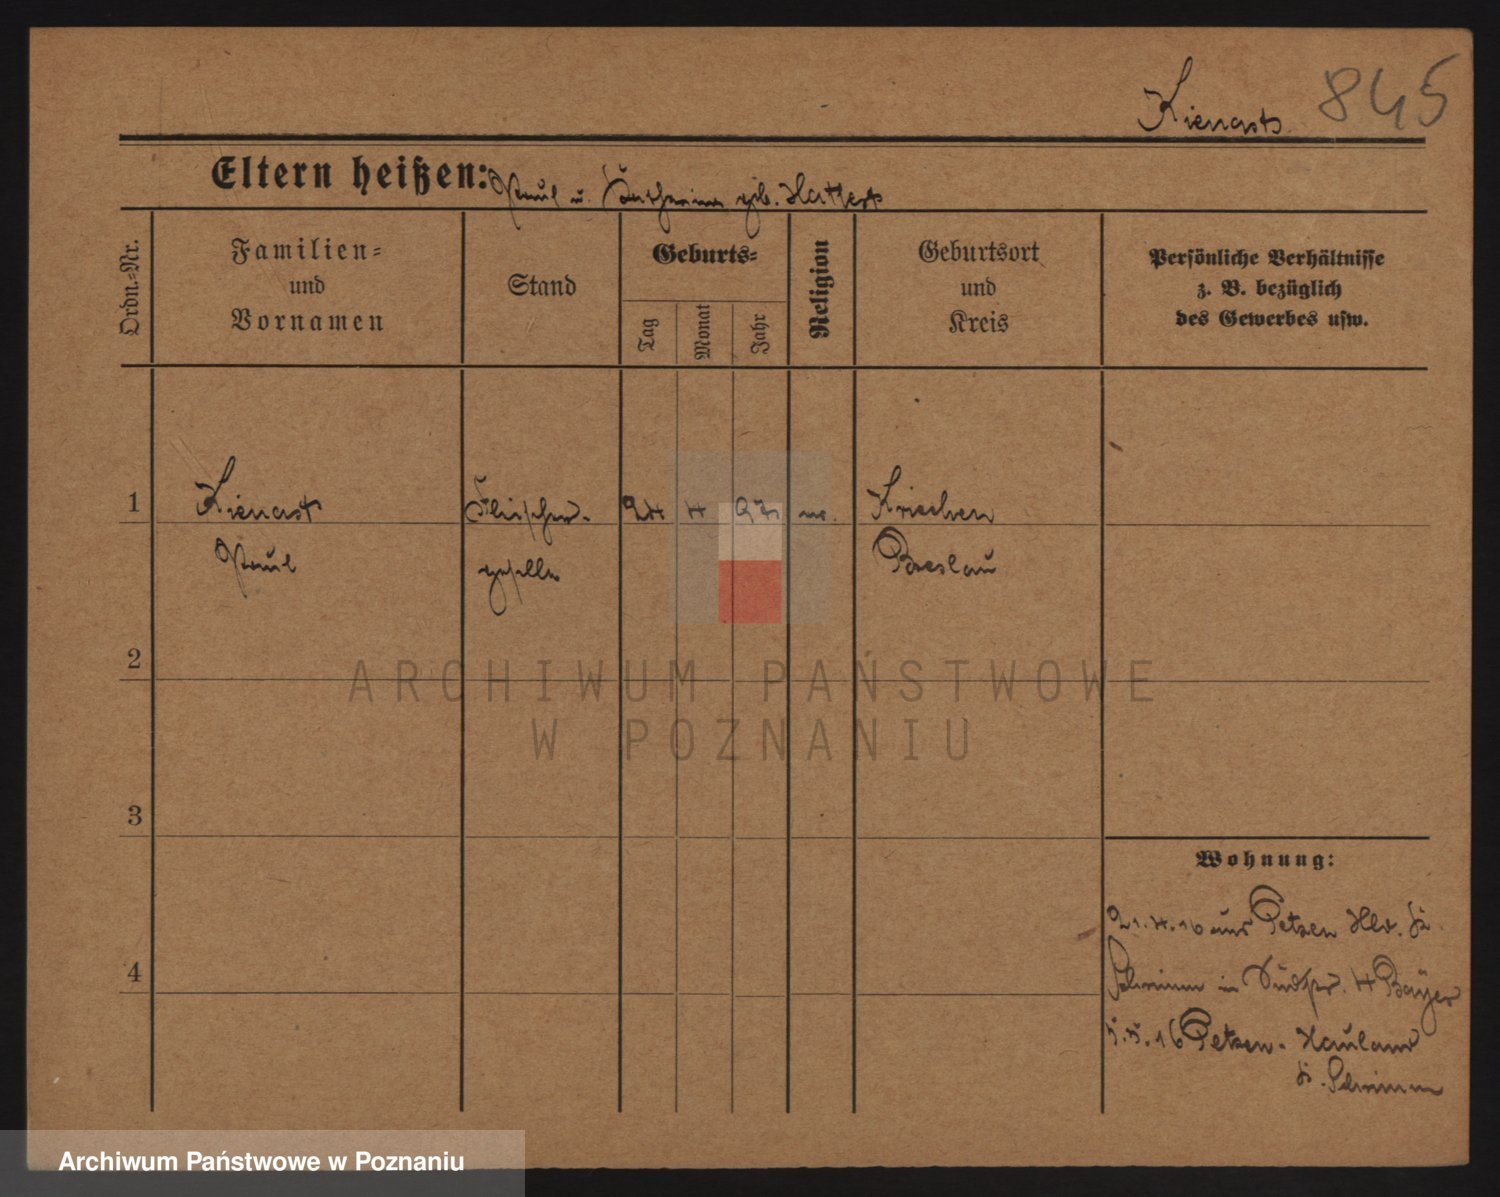 Kienast 845
Eltern heißen: Paul u. geb. Hattert
Ordn.-Nr.
Familien-
und
Vornamen
Stand
Geburts-
Tag
Monat
Jahr
Religion
Geburtsort
und
Kreis
Persönliche Verhältnisse
z. B. bezüglich
des Gewerbes usw.
1
Kienast
Paul
Fleischer-
geselle
24 4
Krischen
Breslau
2
ARCHIWUM PAŃSTWOWE
W POZNANIU
3
4
Wohnung:
21.4.16 aus Petzen Hld. Kr.
Schrimm in 4 Bayer
5.5.16 Petzen- Hauland
Kr. Schrimm
Archiwum Państwowe w Poznaniu